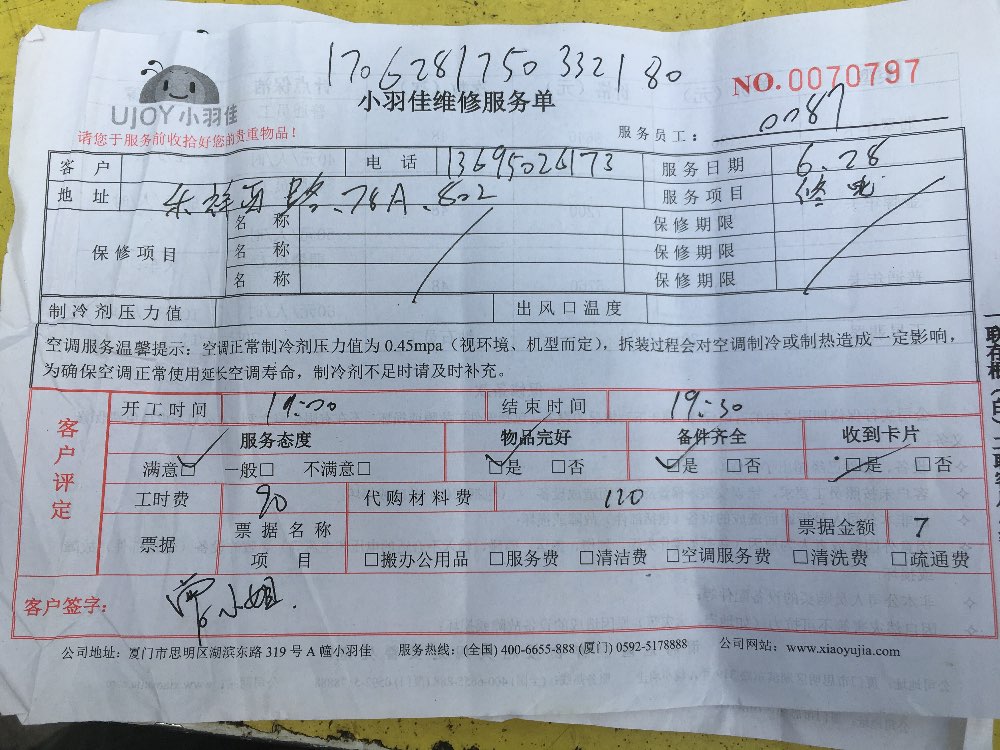 170628175033218​0
UJOY 小羽佳
小羽佳维修服务单
NO.0070797
请您于服务前收拾好您的贵重物品!
服务员工: 0087
客户 电话 13695026173 服务日期 6.28
地址 78A.802 服务项目 修
保修项目 名称 保修期限
名称 保修期限
名称 保修期限
制冷剂压力值 出风口温度
空调服务温馨提示:空调正常制冷剂压力值为 0.45mpa(视环境、机型而定),拆装过程会对空调制冷或制热造成一定影响,
为确保空调正常使用延长空调寿命,制冷剂不足时请及时补充。
客户评定
开工时间 19:00 结束时间 19:30
服务态度 物品完好 备件齐全 收到卡片
满意□ 一般□ 不满意□ □是 □否 □是 □否 □是 □否
工时费 90 代购材料费 120
票据 票据名称 票据金额 7
项目 □搬办公用品 □服务费 □清洁费 □空调服务费 □清洗费 □疏通费
客户签字: 小姐.
公司地址:厦门市思明区湖滨东路 319 号 A 幢小羽佳 服务热线:(全国) 400-6655-888 (厦门) 0592-5178888 公司网站:www.xiaoyujia.com